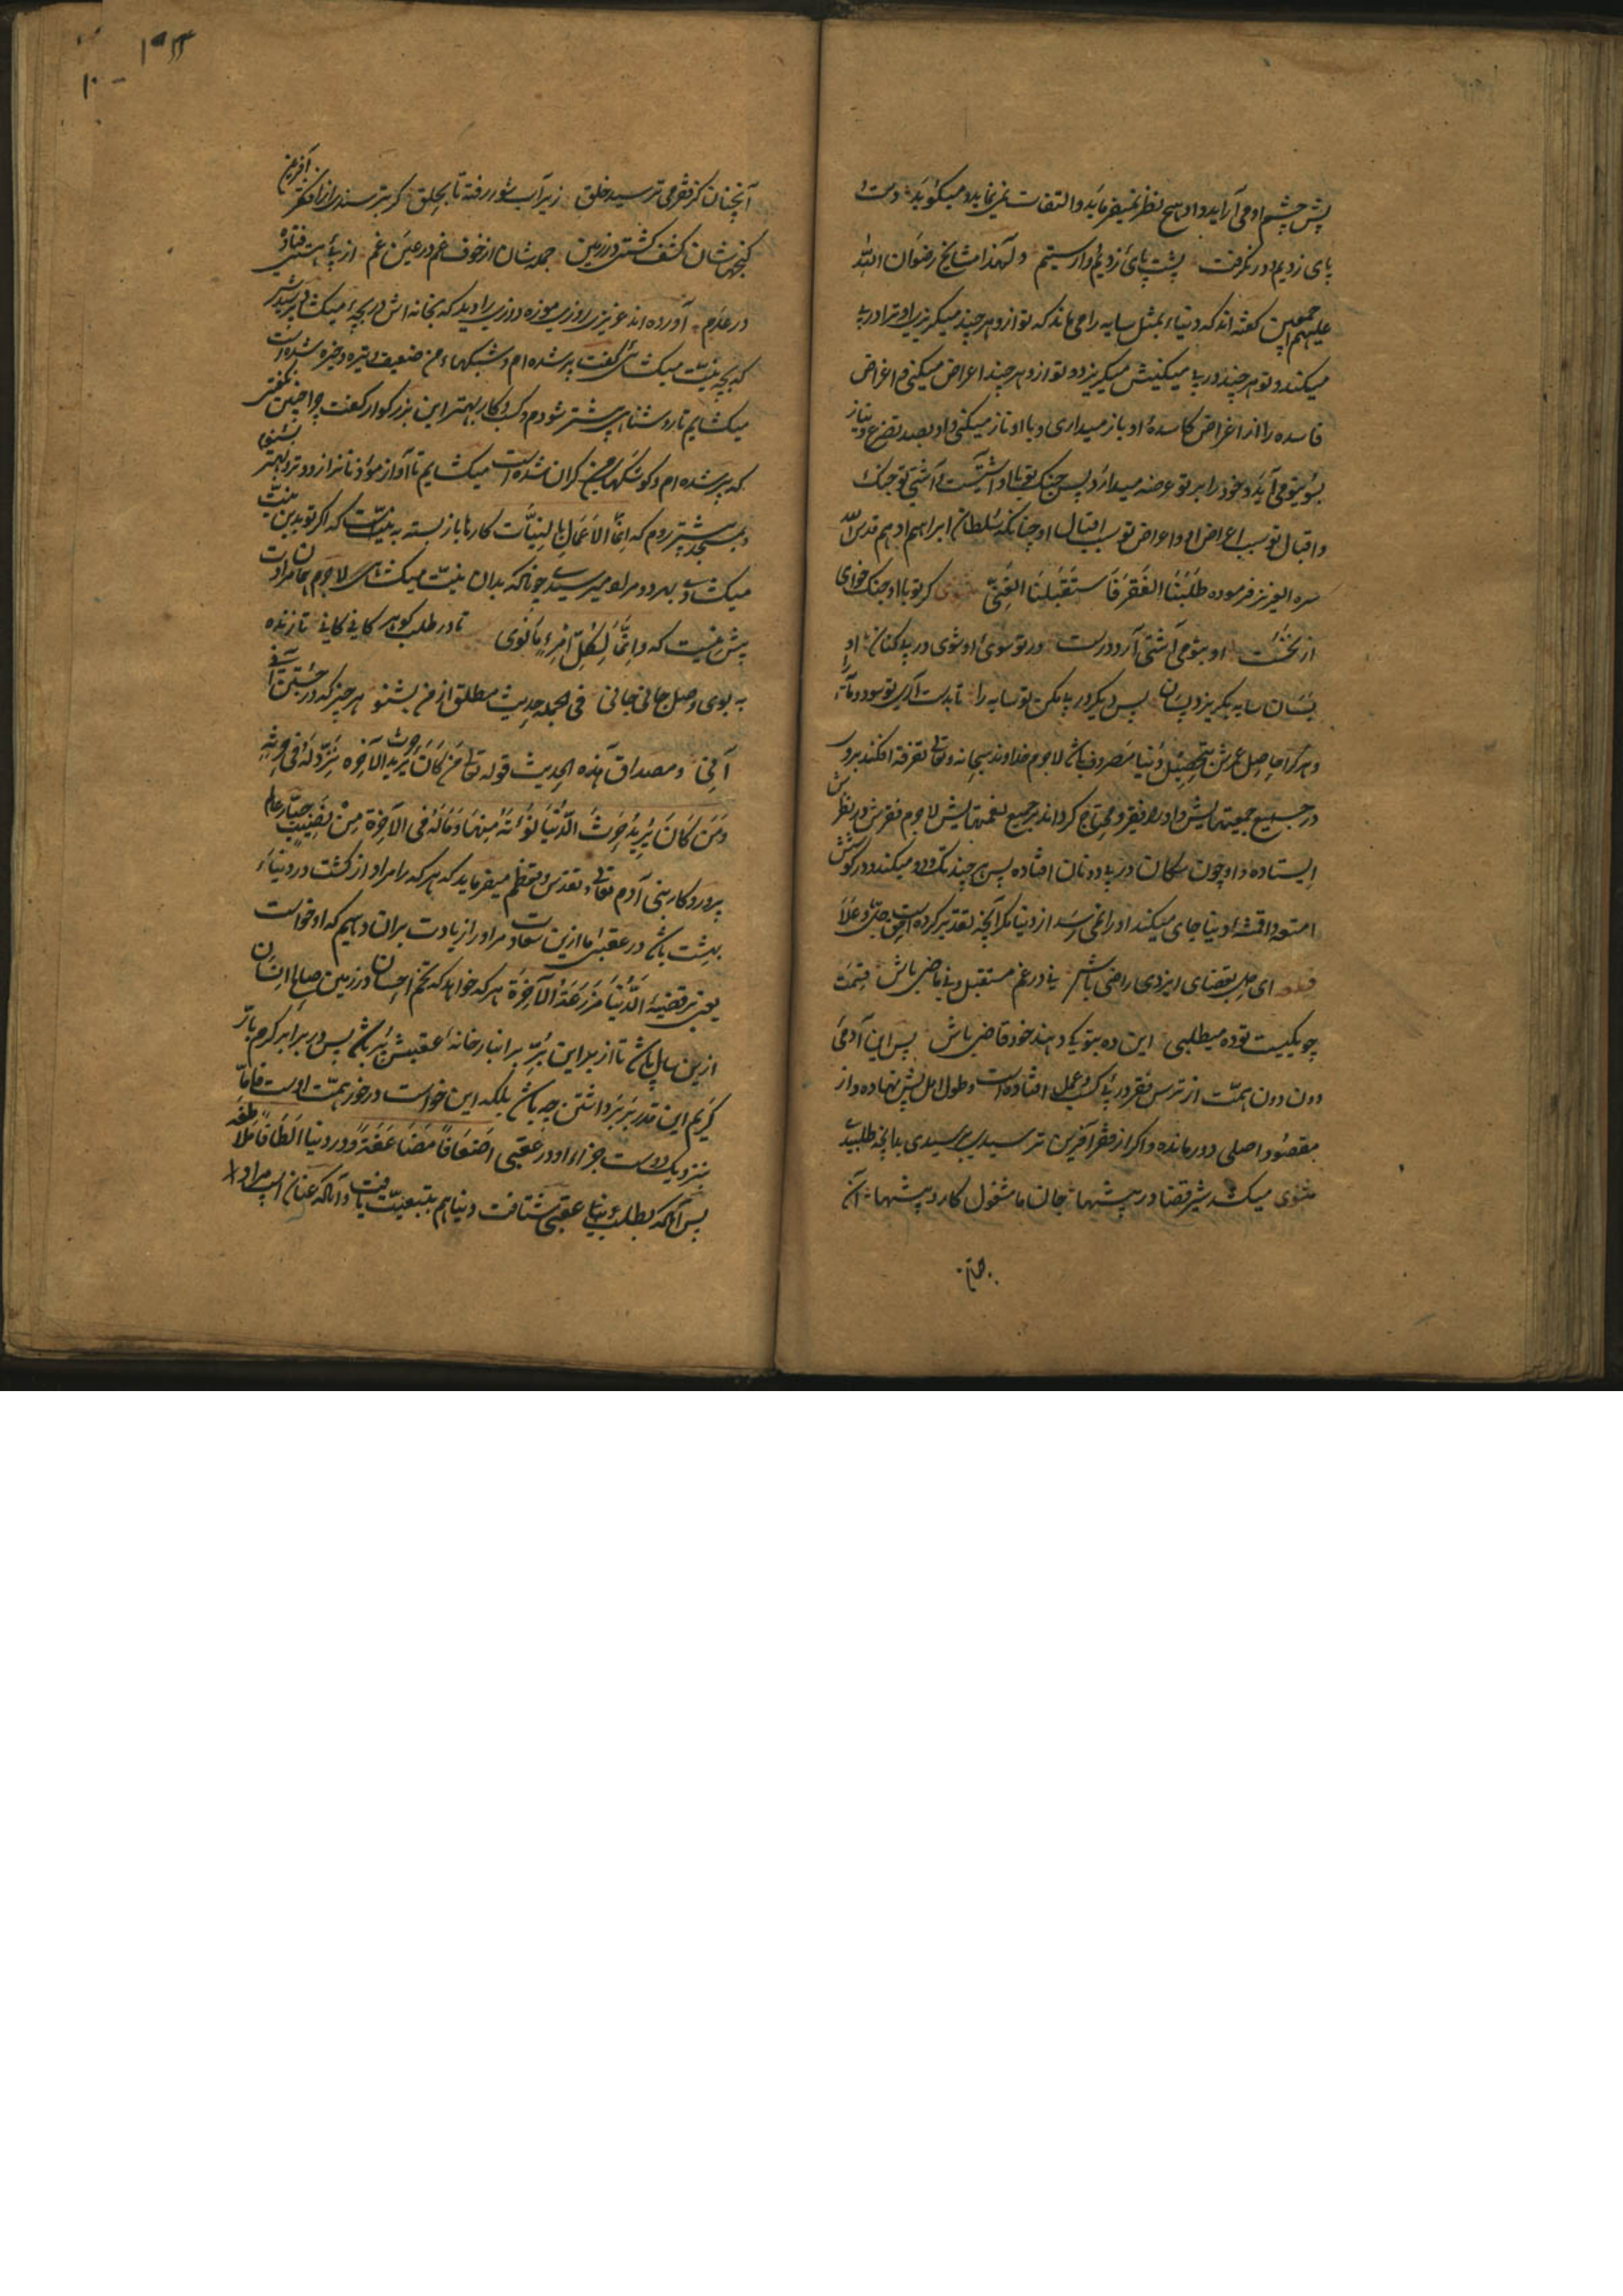 پیش چشم او می آراید و او هیچ نظر نمیفرماید و التفات نمی نماید و میگوید دست و
پای زدیم و در نگرفت پشت پای زدیم و وارستیم و لهذا مشایخ رضوان الله
علیهم اجمعین گفته اند که دنیا بمثل سایه را می ماند که تو ازو هر چند میگریزی او ترا در پی
میکند و تو هر چند در پی میکنیش میگریزد و تو ازو هر چند اعراض میکنی و اغراض
فاسده را از اغراض کاسدهٔ او باز میداری و با او ناز میکنی و او بصد تضرع و نیاز
بسوی تو می آید و خود را بر تو عرضه میدارد پس جنگ تو با او آشتیست و آشتی تو جنگ
و اقبال تو سبب اعراض او و اعراض تو سبب اقبال او چنانکه سلطان ابراهیم ادهم قدس الله
سره العزیز فرموده طَلَبْنَا الفَقْرَ فَاسْتَقْبَلَنَا الغِنیٰ مثنوی گر تو با او جنگ خواهی
از نخست او بتو می آشتی آرد درست ور تو سوی او شوی در پی کنان او
بسان سایه بگریزد پسان پس دیگر در پی مکن تو سایه را تا بدست آری تو سود و مایه را
و هر کرا حاصل عمرش بتحصیل دنیا مصروف باشد لاجرم خداوند سبحانه و تعالی تفرقه افکند برو
در جمیع جمعیتهایش و او را فقیر و محتاج گرداند بر جمیع نعمتهایش لاجرم فقرش در نظرش
ایستاده و او چون سگان در پی دو نان افتاده پس هر چند تک و دو میکند و در گوشش
امتعه و اقمشهٔ دنیا جای میکند او را نمی رسد از دنیا مگر آنچه تقدیر کرده است حق جل و علا
قطعه ای دل بقضای ایزدی راضی باش نی در غم مستقبل و نی ماضی باش قسمت
چو یکیست تو ده میطلبی این ده بتو یک دهند خود قاضی باش پس این آدمی
دون دون همت از ترس فقر در پی کسب و عمل افتاده است و طول امل پیش نهاده و از
مقصود اصلی دور مانده و اگر از فقر آفرین ترسیدی برسیدی بدانچه طلبیدی
مثنوی میکشد شیر قضا در بیشها جان ما مشغول کار و پیشها آن
آنچنان
آنچنان کز فقر می ترسید خلق زیر آب شور رفته تا بحلق گر بترسندی از آن فقر آفرین
گنجهاشان کشف گشتی در زمین جمله شان از خوف غم در عین غم از پی هستی فتاده
در عدم آورده اند عزیزی روزی موزه دوزی را دید که بخانه اش دریچهٔ میکشاد پرسیدش
که بچه نیت میکشائی گفت پیر شده ام و چشمهای من ضعیف و تیره و خیره شده است
میکشایم تا روشنائی بیشتر شود و کسب و کار بهتر این بزرگوار گفت چرا چنین نگفتی
که پیر شده ام و گوشهای من گران شده است میکشایم تا آواز مؤذنان از دور تر و بهتر بشنوم
و بمسجد پیشتر روم که اِنَّمَا الاَعْمَالُ بِالنِّیَّات کارها باز بسته به نیتست که اگر تو بدین نیت
میکشادی بهر دو مراد میرسیدی چونانکه بدان نیت میکشائی لاجرم همان مرادت
پیش نیست که وَاِنَّمَا لِکُلِّ امْرِءٍ مَا نَوی تا در طلب گوهر کانی کانی تا زنده
به بوی وصل جانی جانی فی الجمله حدیث مطلق از من بشنو هر چیز که در جستن آنی
آنی و مصداق هذه الحدیث قوله تعالی مَنْ کَانَ یُرِیدُ حَرْثَ الآخِرَةِ نَزِدْ لَهُ فِی حَرْثِهِ
وَمَنْ کَانَ یُرِیدُ حَرْثَ الدُّنْیَا نُؤْتِهِ مِنْهَا وَمَا لَهُ فِی الآخِرَةِ مِنْ نَصِیبٍ جبار عالم
پروردگار بنی آدم تعالی و تقدس و تعظم میفرماید که هر که را مراد از کشت در دنیا
بهشت باشد در عقبی ما ازین سعادت مر او را زیادت بران دهیم که او خواست
یعنی بر قضیهٔ اَلدُّنْیَا مَزْرَعَةُ الآخِرَة هر که خواهد که تخم احسان در زمین صالح انسان
ازین سال باشد تا از بر این بر انبار خانهٔ عقبیش پر باشد پس در برابر کرم بار
کریم این قدر بر برداشتن چه باشد بلکه این خواست در خور همت اوست فاما
بنزدیک دوست جزاء او در عقبی اَضْعَافًا مُضَاعَفَةً و در دنیا
پس آنکه بطلب بنهای عقبی شتافت دنیا هم بتبعیت یافت و آنکه عنان اسپ مراد را